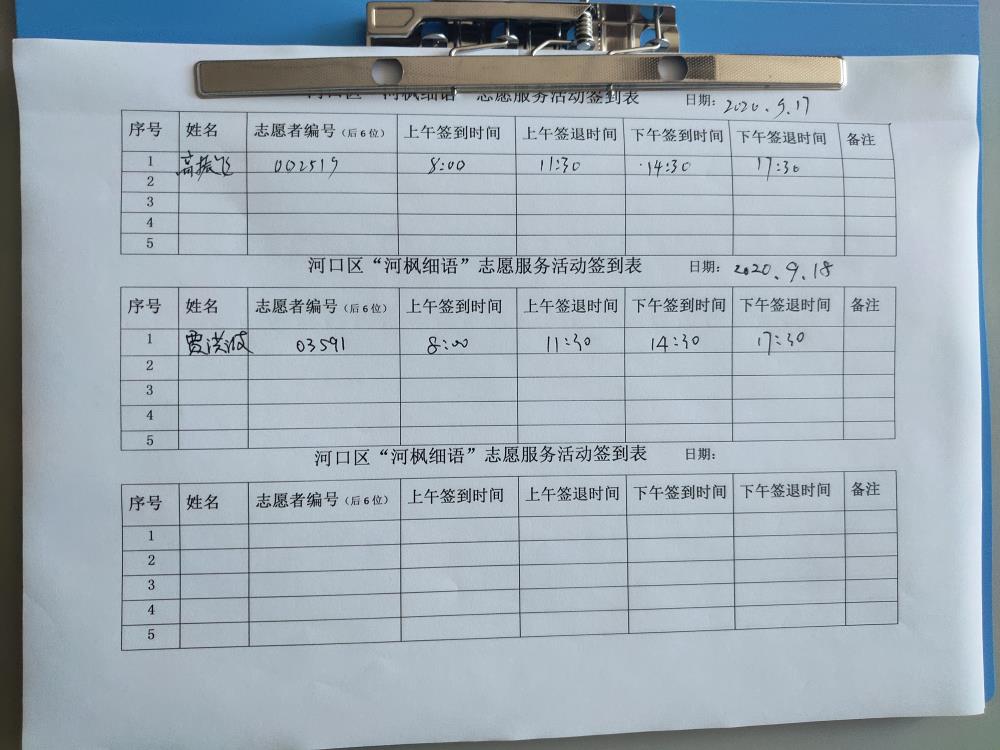 河口区“河枫细语”志愿服务活动签到表 日期: 2020.9.17
序号 姓名 志愿者编号(后6位) 上午签到时间 上午签退时间 下午签到时间 下午签退时间 备注
1 高振飞 002519 8:00 11:30 14:30 17:30
2
3
4
5
河口区“河枫细语”志愿服务活动签到表 日期: 2020.9.18
序号 姓名 志愿者编号(后6位) 上午签到时间 上午签退时间 下午签到时间 下午签退时间 备注
1 贾洪波 03591 8:00 11:30 14:30 17:30
2
3
4
5
河口区“河枫细语”志愿服务活动签到表 日期:
序号 姓名 志愿者编号(后6位) 上午签到时间 上午签退时间 下午签到时间 下午签退时间 备注
1
2
3
4
5